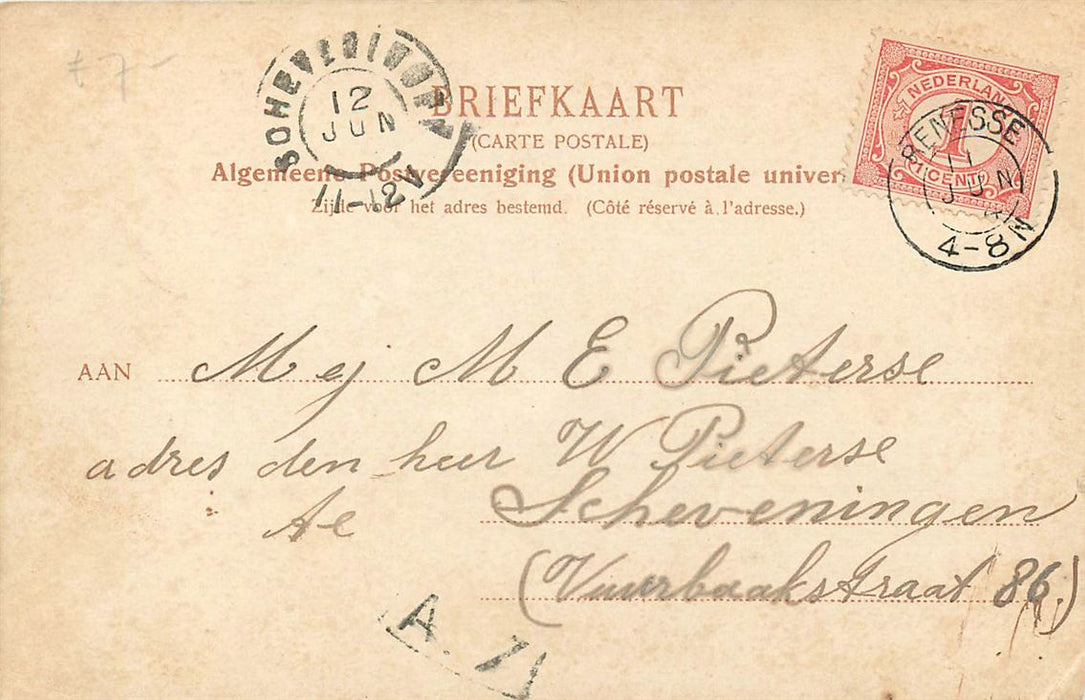 £ 7-
SCHEVENINGEN
12
JUN
11-12V
BRIEFKAART
(CARTE POSTALE)
Algemeene Postvereeniging (Union postale univer
Zijde voor het adres bestemd. (Côté réservé à l'adresse.)
NEDERLAND
1
1 CENT
RENESSE
11
JUN
4-8N
AAN Mej M E Pieterse
adres den heer W Pieterse
te Scheveningen
(Vuurbaakstraat 86.)
A. 7